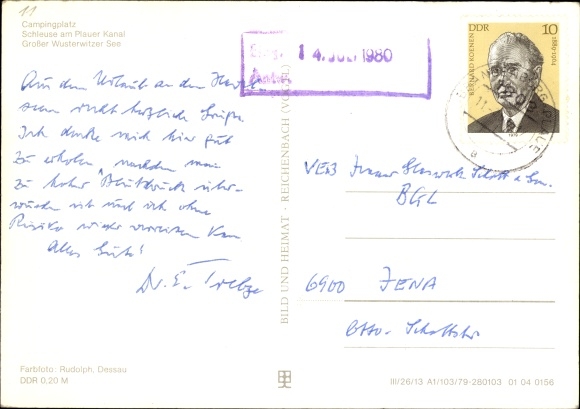 11
Campingplatz
Schleuse am Plauer Kanal
Großer Wusterwitzer See
Aus dem Urlaub an den Havel-
seen recht herzliche Grüße.
Ich denke mich hier gut
zu erholen nachdem mein
zu hoher Blutdruck über-
wunden ist und ich ohne
Risiko wieder verreisen kann
Alles Gute!
Dr. E.
Farbfoto: Rudolph, Dessau
DDR 0,20 M
BILD UND HEIMAT · REICHENBACH (VOGTL)
Eing. 14. JULI 1980
DDR 10
BERNARD KOENEN
1889-1964
VEB Jenaer Glaswerk Schott u. Gen.
BGL
6900 JENA
Otto-Schottstr
III/26/13 A1/103/79-280103 01 04 0156